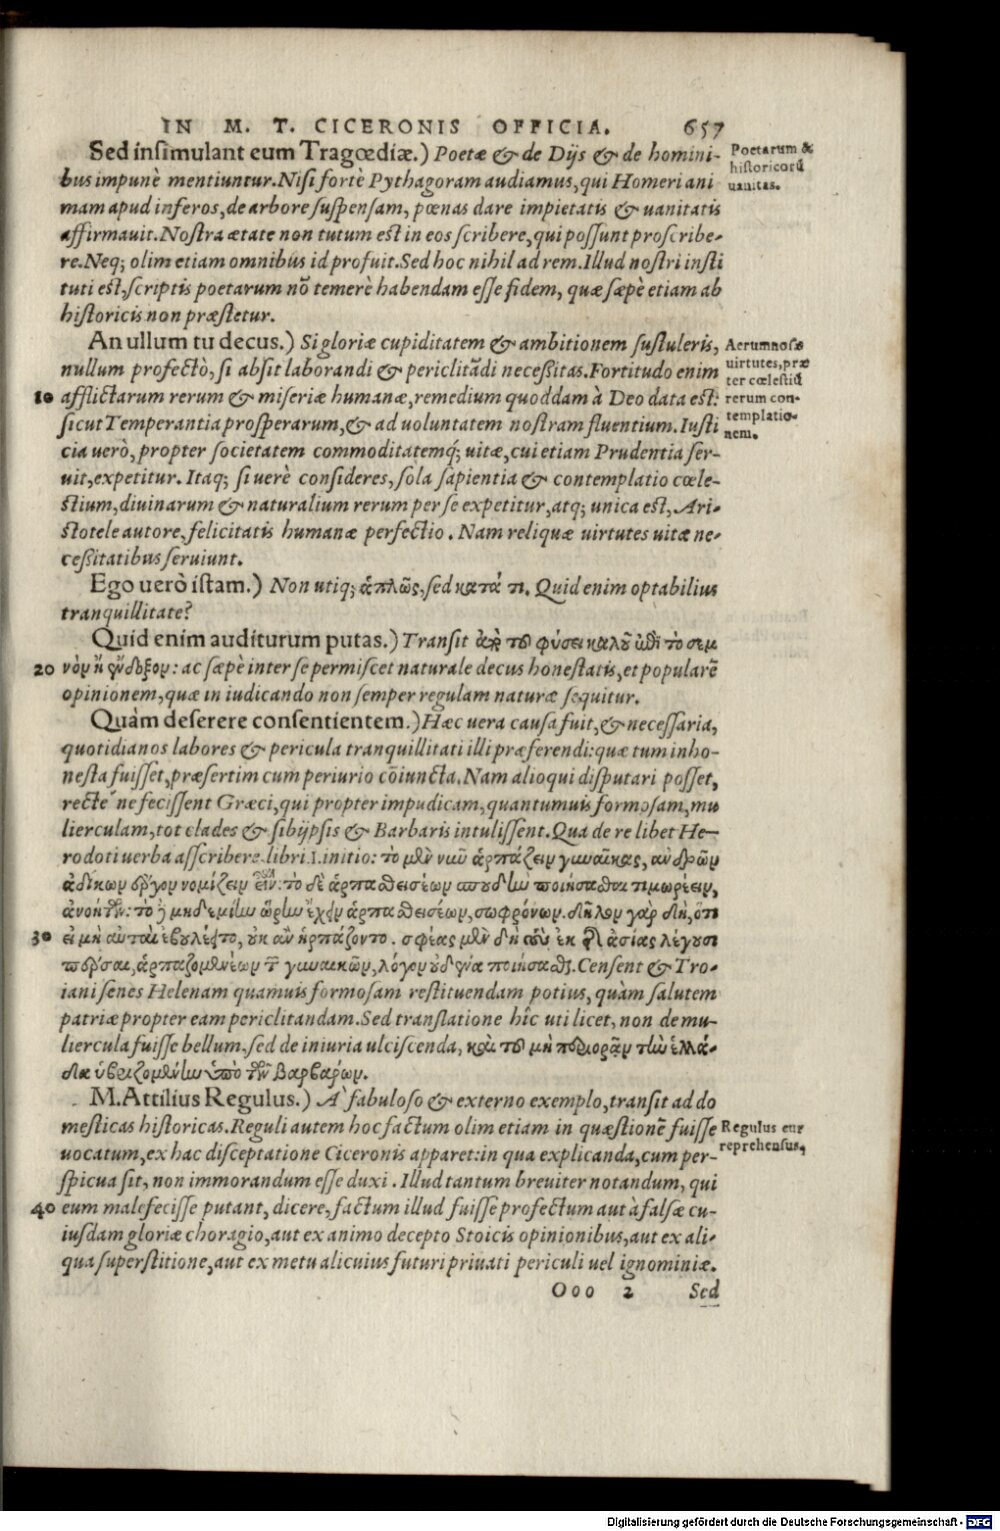 IN M. T. CICERONIS OFFICIA. 657
Sed insimulant eum Tragœdiæ.) Poetæ & de Dijs & de homini-
bus impunè mentiuntur. Nisi fortè Pythagoram audiamus, qui Homeri ani
mam apud inferos, de arbore suspensam, pœnas dare impietatis & uanitatis
affirmauit. Nostra ætate non tutum est in eos scribere, qui possunt proscribe-
re. Neq; olim etiam omnibus id profuit. Sed hoc nihil ad rem. Illud nostri insti
tuti est, scriptis poetarum nō temerè habendam esse fidem, quæ sæpè etiam ab
historicis non præstetur.
Poetarum &
historicorū
uanitas.
An ullum tu decus.) Si gloriæ cupiditatem & ambitionem sustuleris,
nullum profectò, si absit laborandi & periclitādi necessitas. Fortitudo enim
10 afflictarum rerum & miseriæ humanæ, remedium quoddam à Deo data est:
sicut Temperantia prosperarum, & ad uoluntatem nostram fluentium. Iusti
cia uerò, propter societatem commoditatemq́; uitæ, cui etiam Prudentia ser-
uit, expetitur. Itaq; si uerè consideres, sola sapientia & contemplatio cœle-
stium, diuinarum & naturalium rerum per se expetitur, atq; unica est, Ari-
stotele autore, felicitatis humanæ perfectio. Nam reliquæ uirtutes uitæ ne-
cessitatibus seruiunt.
Aerumnosæ
uirtutes, præ
ter cœlestiū
rerum con-
templatio-
nem.
Ego uerò istam.) Non utiq; ἁπλῶς, sed κατά τι. Quid enim optabilius
tranquillitate?
Quid enim auditurum putas.) Transit ἀπὸ τοῦ φύσει καλοῦ ἐπὶ τὸ σεμ
20 νὸν ἢ ἔνδοξον: ac sæpè inter se permiscet naturale decus honestatis, et popularē
opinionem, quæ in iudicando non semper regulam naturæ sequitur.
Quàm deserere consentientem.) Hæc uera causa fuit, & necessaria,
quotidianos labores & pericula tranquillitati illi præferendi: quæ tum inho-
nesta fuisset, præsertim cum periurio cōiuncta. Nam alioqui disputari posset,
rectè ne fecissent Græci, qui propter impudicam, quantumuis formosam, mu
lierculam, tot clades & sibijpsis & Barbaris intulissent. Qua de re libet He-
rodoti uerba asscribere libri I. initio: τὸ μὲν νυῦ ἁρπάζειν γυναῖκας, ἀνδρῶν
ἀδίκων ἔργον νομίζειν εἶναι: τὸ δὲ ἁρπασθεισέων σπουδὴν ποιήσασθαι τιμωρέειν,
ἀνοήτων: τὸ δὲ μηδεμίην ὤρην ἔχειν ἁρπασθεισέων, σωφρόνων. δῆλον γὰρ δὴ, ὅτι
30 εἰ μὴ αὐταὶ ἐβουλέατο, οὐκ ἂν ἡρπάζοντο. σφέας μὲν δὴ τοὺς ἐκ τῆς ἀσίας λέγουσι
πέρσαι, ἁρπαζομενέων τῶν γυναικῶν, λόγον οὐδένα ποιήσασθαι. Censent & Tro-
iani senes Helenam quamuis formosam restituendam potius, quàm salutem
patriæ propter eam periclitandam. Sed translatione hîc uti licet, non de mu-
liercula fuisse bellum, sed de iniuria ulciscenda, καὶ τοῦ μὴ περιορᾶν τὴν ἑλλά-
δα ὑβριζομένην ὑπὸ τῶν Βαρβάρων.
M. Attilius Regulus.) A` fabuloso & externo exemplo, transit ad do
mesticas historicas. Reguli autem hoc factum olim etiam in quæstionē fuisse
uocatum, ex hac disceptatione Ciceronis apparet: in qua explicanda, cum per-
spicua sit, non immorandum esse duxi. Illud tantum breuiter notandum, qui
40 eum malefecisse putant, dicere, factum illud fuisse profectum aut à falsæ cu-
iusdam gloriæ choragio, aut ex animo decepto Stoicis opinionibus, aut ex ali-
qua superstitione, aut ex metu alicuius futuri priuati periculi uel ignominiæ.
Regulus cur
reprehensus,
Ooo 2 Sed
Digitalisierung gefördert durch die Deutsche Forschungsgemeinschaft - DFG